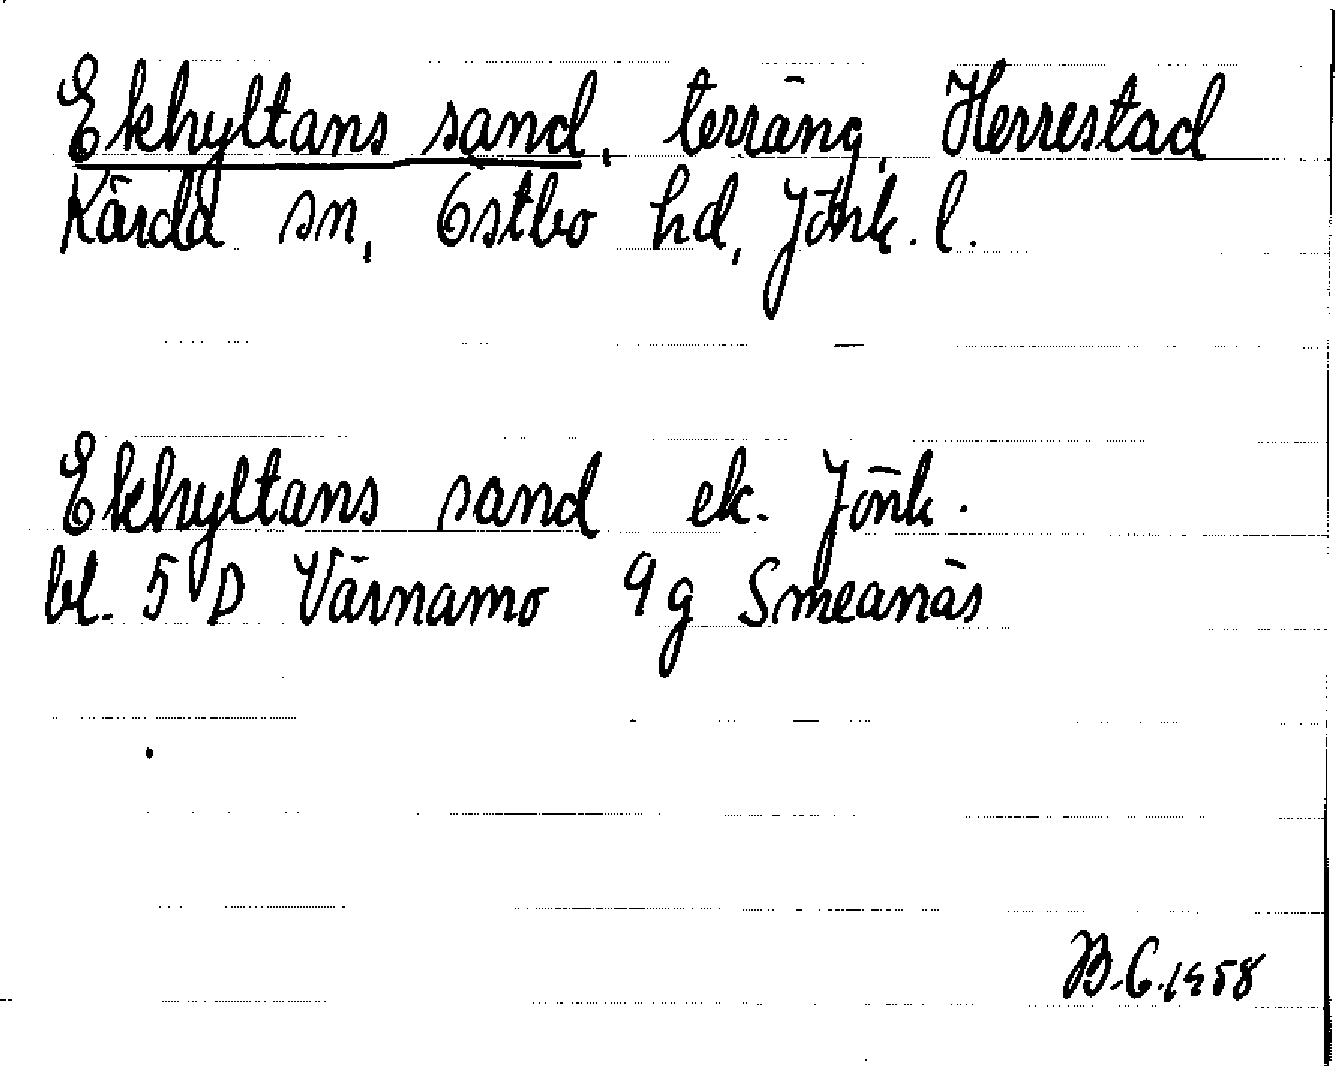 Ekhyltans sand, terräng, Herrestad
Kärda sn, Östbo hd, Jönk. l.
Ekhyltans sand ek. Jönk.
bl. 5 D Värnamo 9 g Smeanäs
B.C. 1958